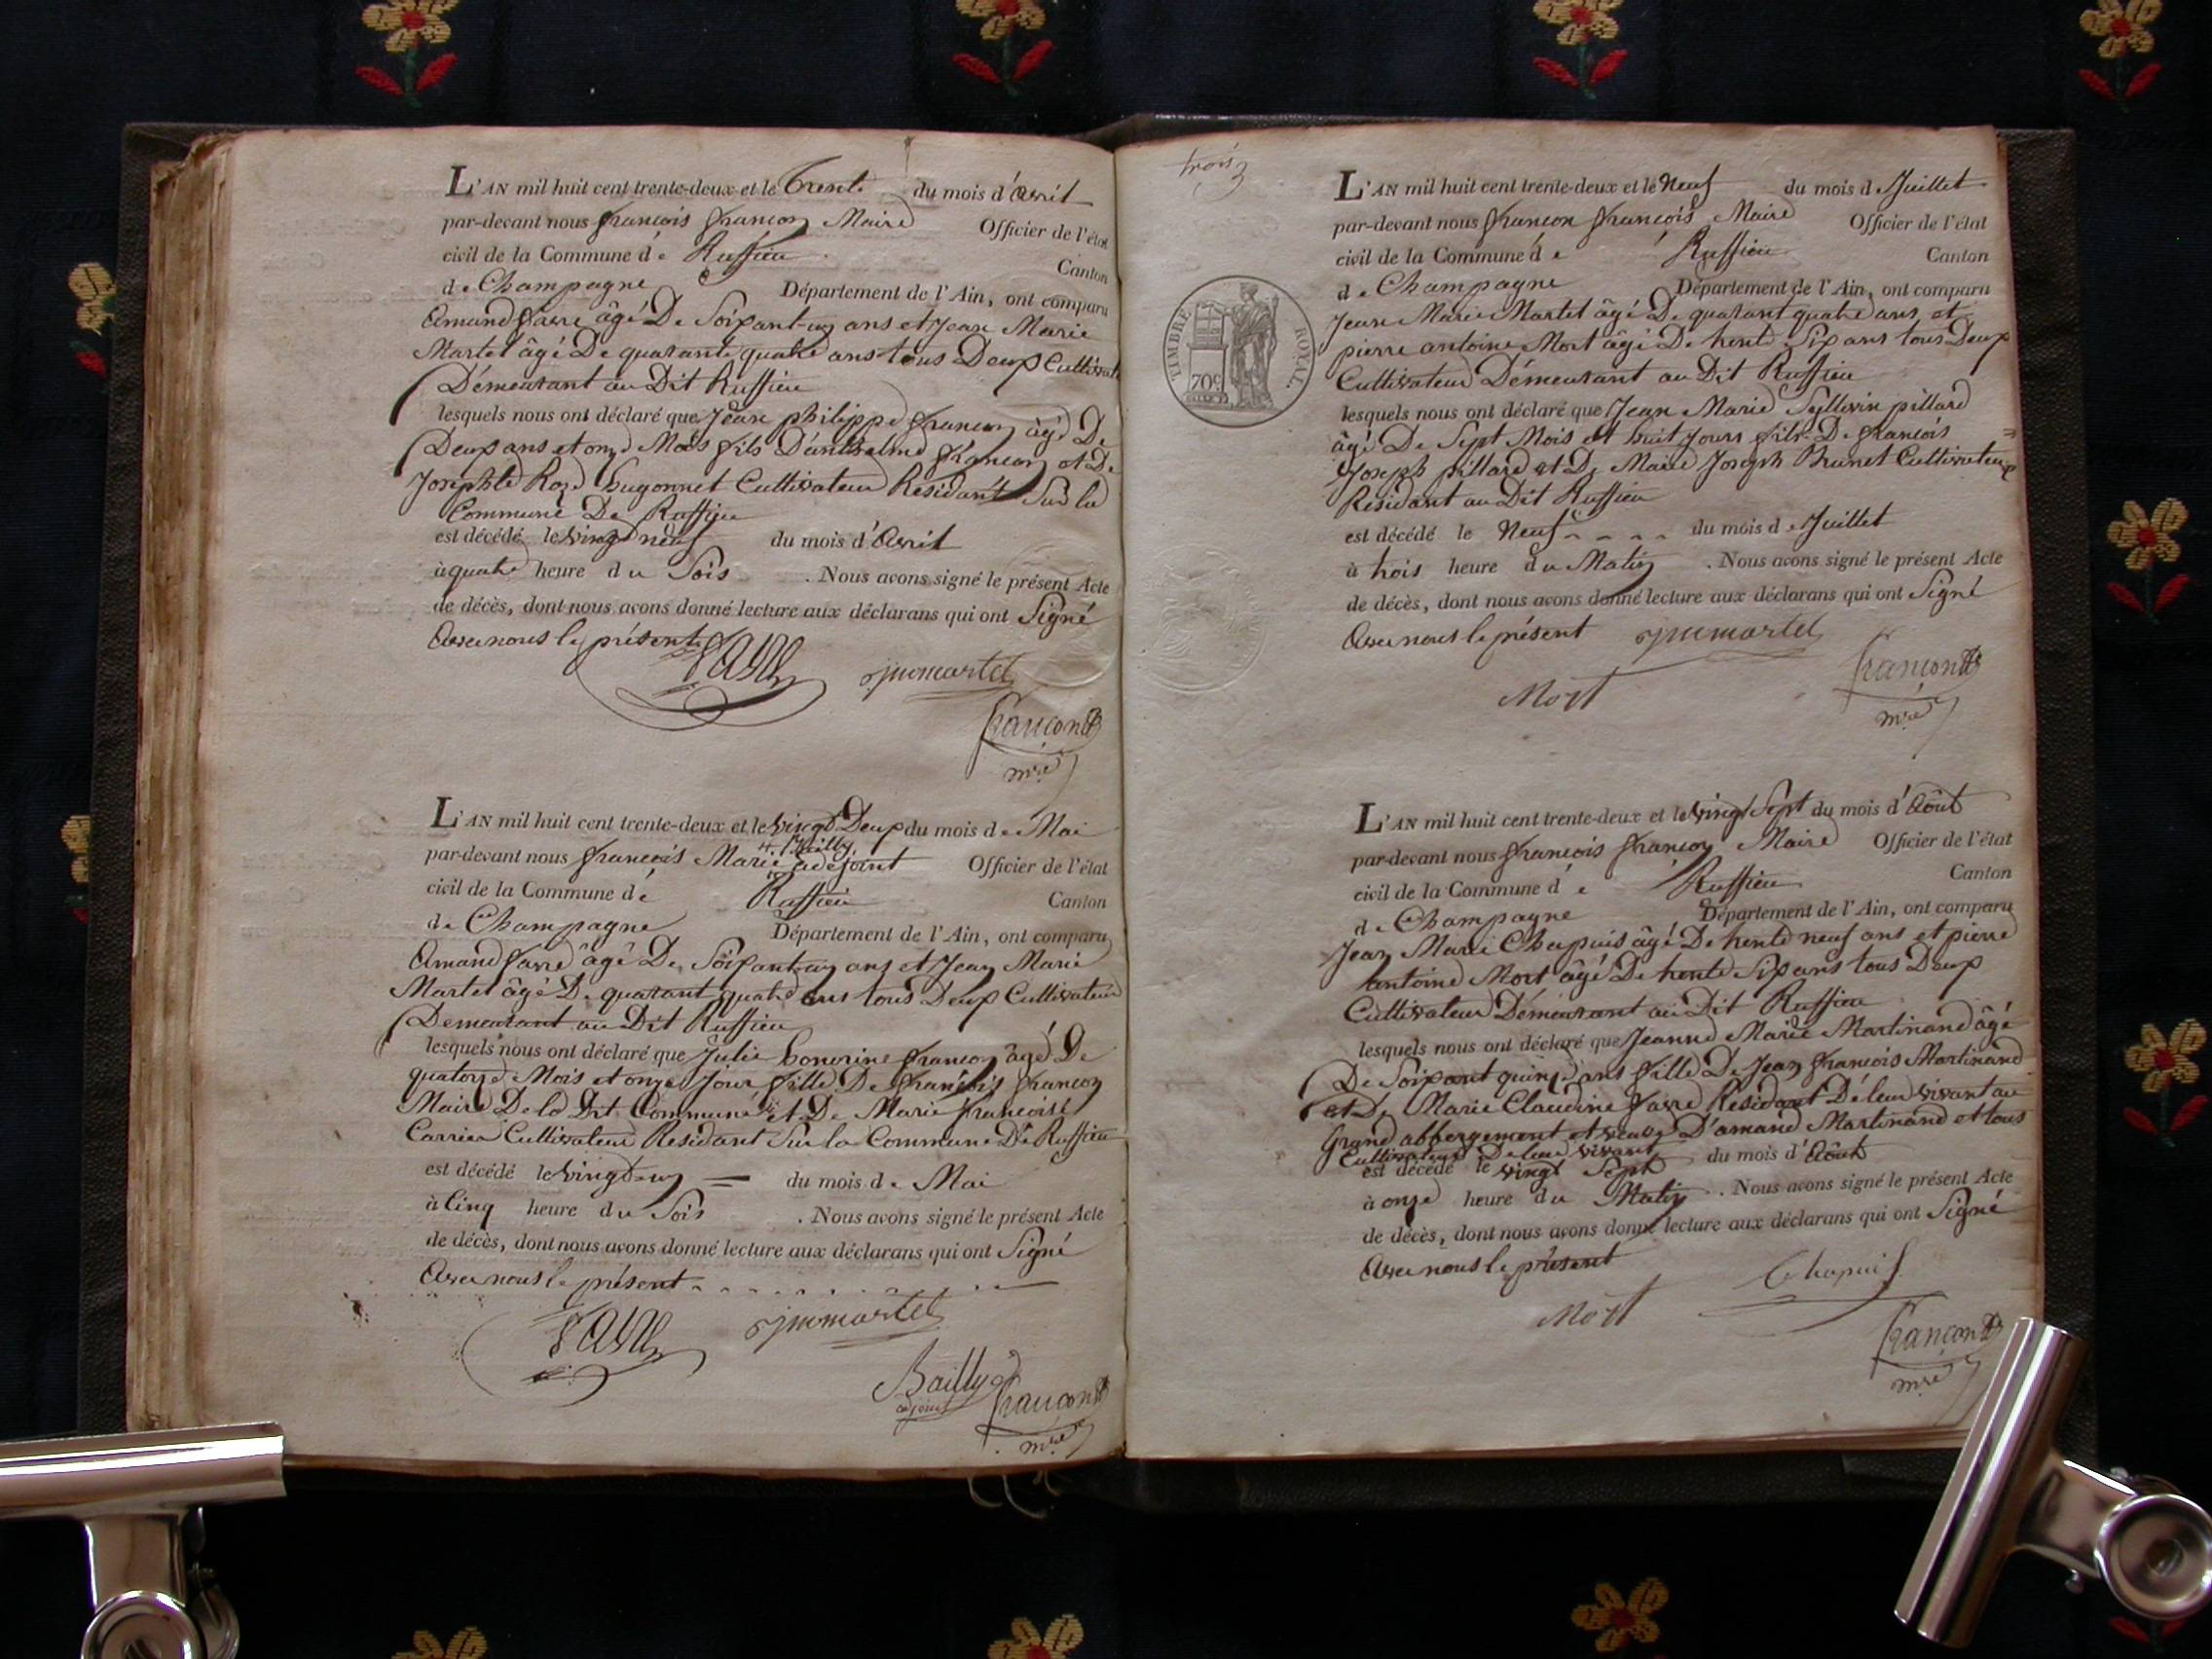 L'AN mil huit cent trente-deux et le Trente du mois d'Avril
par-devant nous françois françon Maire Officier de l'état
civil de la Commune de Ruffieu Canton
de Champagne Département de l'Ain, ont comparu
Amand favre âgé De Soixant-un ans et Jean Marie
Martel âgé De quarant quatre ans tous Deux Cultivat
Démeurant au Dit Ruffieu
lesquels nous ont déclaré que Jean philippe françon âgé De
Deux ans et onze Mois fils D'anthelme françon et De
Josephte Roze hugonnet Cultivateur Résidant Sur la
Commune De Ruffieu
est décédé le vingt neuf du mois d'Avril
à quatre heure du Soir . Nous avons signé le présent Acte
de décès, dont nous avons donné lecture aux déclarans qui ont Signé
Avec nous le présent favre jmmartel
françon
mre
L'AN mil huit cent trente-deux et le vingt Deux du mois de Mai
h. Bailly
par-devant nous françois Marie adejoint Officier de l'état
civil de la Commune dé Ruffieu Canton
de Champagne Département de l'Ain, ont comparu
Amand favre âgé De Soixant-un ans et Jean Marie
Martel âgé De quarant quatre ans tous Deux Cultivateur
Demeurant au Dit Ruffieu
lesquels nous ont déclaré que Julie honorine françon âgé De
quatorze Mois et onze Jour fille De françois françon
Maire De la Dit Commune et De Marie françoise
Carrier Cultivateur Residant Sur la Commune De Ruffieu
est décédé le vingt-un du mois de Mai
à Cinq heure du Soir . Nous avons signé le présent Acte
de décès, dont nous avons donné lecture aux déclarans qui ont Signé
Avec nous le présent
favre jmmartel
Bailly françon
adjoint mre
trois 3
L'AN mil huit cent trente-deux et le Neuf du mois de Juillet
par-devant nous françon françois Maire Officier de l'état
civil de la Commune dé Ruffieu Canton
de Champagne Département de l'Ain, ont comparu
Jean Marie Martel âgé De quarant quatre ans, et
pierre antoine Mort âgé De trente Six ans tous Deux
Cultivateur Démeurant au Dit Ruffieu
TIMBRE ROYAL.
70c
lesquels nous ont déclaré que Jean Marie Syllevin pillard
âgé De Sept Mois et huit Jours fils De françois
Joseph pillard et De Marie Joseph Brunet Cultivateur
Résidant au Dit Ruffieu
est décédé le Neuf du mois de Juillet
à trois heure du Matin . Nous avons signé le présent Acte
de décès, dont nous avons donné lecture aux déclarans qui ont Signé
Avec nous le présent jmmartel
Mort françon
mre
L'AN mil huit cent trente-deux et le vingt Sept du mois d'Août
par-devant nous françois françon Maire Officier de l'état
civil de la Commune de Ruffieu Canton
de Champagne Département de l'Ain, ont comparu
Jean Marie Chapuis âgé De trente neuf ans et pierre
antoine Mort âgé De trente Six ans tous Deux
Cultivateur Démeurant au Dit Ruffieu
lesquels nous ont déclaré que Jeanne Marie Martinand âgé
De Soixant quinze ans fille De Jean françois Martinand
et De Marie Claudine favre Residant De leur vivant au
Grand abbergement et veuve D'amand Martinand et tous
Cultivateur De leur vivant
est décédé le vingt Sept du mois d'Août
à onze heure du Matin . Nous avons signé le présent Acte
de décès, dont nous avons donné lecture aux déclarans qui ont Signé
Avec nous le présent Chapuis
Mort françon
mre